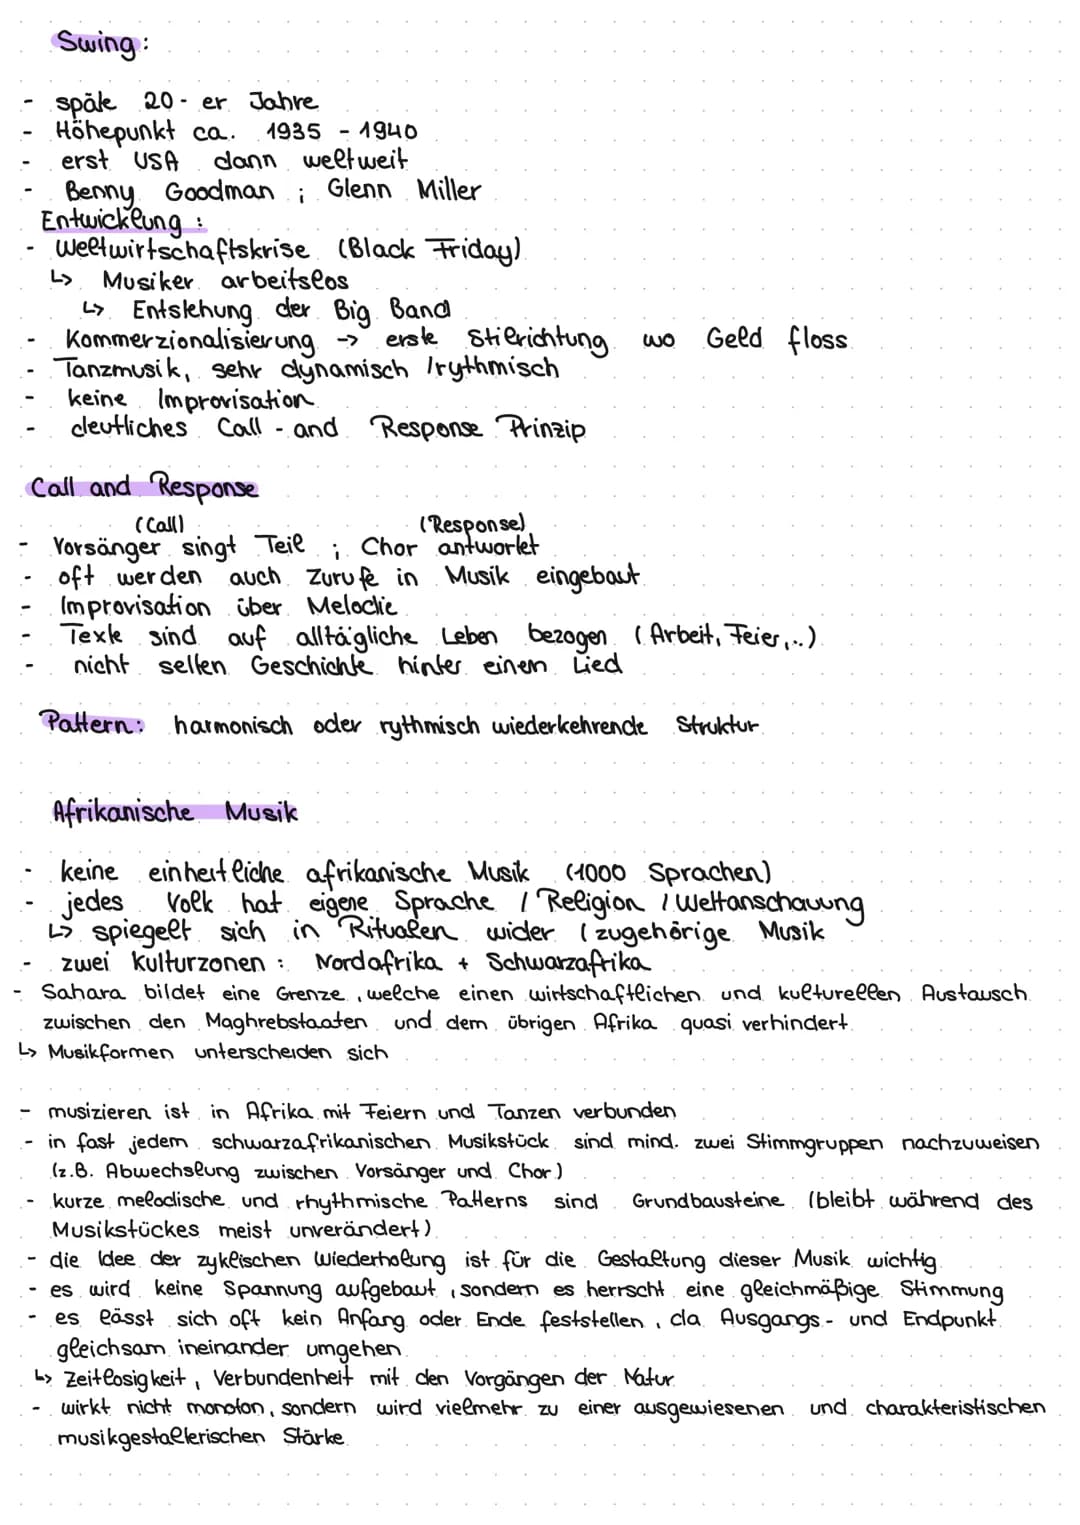 Swing:
- späte 20-er Jahre
- Höhepunkt ca. 1935 - 1940
- erst USA dann weltweit
- Benny Goodman ; Glenn Miller
Entwicklung:
- Weltwirtschaftskrise (Black Friday)
↳ Musiker arbeitslos
↳ Entstehung der Big Band
- Kommerzionalisierung -> erste Stilrichtung wo Geld floss
- Tanzmusik, sehr dynamisch /rythmisch
- keine Improvisation
- deutliches Call - and Response Prinzip
Call and Response
(Call) (Response)
- Vorsänger singt Teil ; Chor antwortet
- oft werden auch Zurufe in Musik eingebaut
- Improvisation über Melodie
- Texte sind auf alltägliche Leben bezogen (Arbeit, Feier,..)
- nicht selten Geschichte hinter einem Lied
Pattern: harmonisch oder rythmisch wiederkehrende Struktur
Afrikanische Musik
- keine einheitliche afrikanische Musik (1000 Sprachen)
- jedes Volk hat eigene Sprache / Religion / Weltanschauung
↳ spiegelt sich in Ritualen wider ( zugehörige Musik
- zwei Kulturzonen : Nordafrika + Schwarzafrika
- Sahara bildet eine Grenze, welche einen wirtschaftlichen und kulturellen Austausch
zwischen den Maghrebstaaten und dem übrigen Afrika quasi verhindert
↳ Musikformen unterscheiden sich
- musizieren ist in Afrika mit Feiern und Tanzen verbunden
- in fast jedem schwarzafrikanischen Musikstück sind mind. zwei Stimmgruppen nachzuweisen
(z.B. Abwechslung zwischen Vorsänger und Chor)
- kurze melodische und rhythmische Patterns sind Grundbausteine (bleibt während des
Musikstückes meist unverändert)
- die Idee der zyklischen Wiederholung ist für die Gestaltung dieser Musik wichtig
- es wird keine Spannung aufgebaut, sondern es herrscht eine gleichmäßige Stimmung
- es lässt sich oft kein Anfang oder Ende feststellen, da Ausgangs- und Endpunkt
gleichsam ineinander umgehen
↳ Zeitlosigkeit, Verbundenheit mit den Vorgängen der Natur
- wirkt nicht monoton, sondern wird vielmehr zu einer ausgewiesenen und charakteristischen
musikgestallerischen Stärke